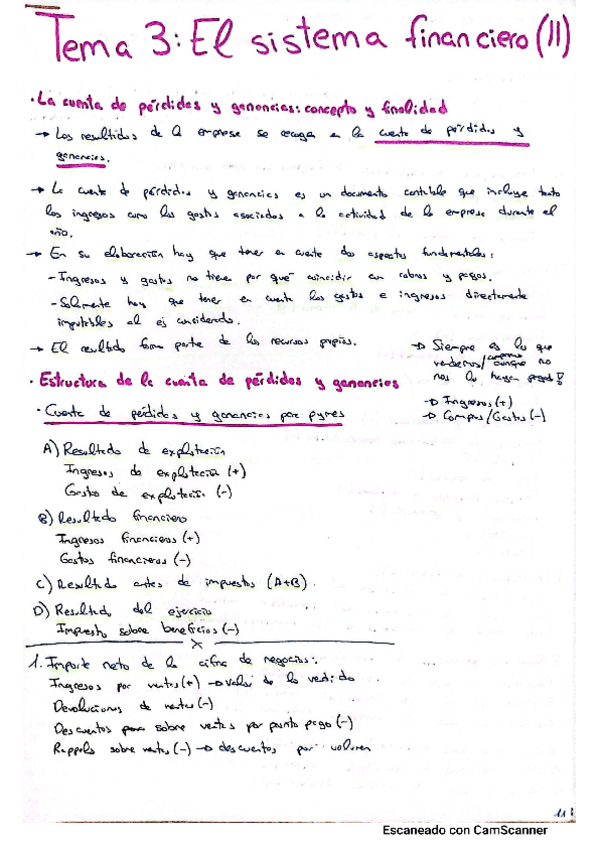 Tema 3: El sistema financiero (II)
· La cuenta de pérdidas y ganancias: concepto y finalidad
→ Los resultados de la empresa se recoge en la cuenta de pérdidas y
ganancias.
→ La cuenta de pérdidas y ganancias es un documento contable que incluye tanto
los ingresos como los gastos asociados a la actividad de la empresa durante el
año.
→ En su elaboración hay que tener en cuenta dos aspectos fundamentales:
- Ingresos y gastos no tiene por qué coincidir con cobros y pagos.
- Solamente hay que tener en cuenta los gastos e ingresos directamente
imputables al ej considerado.
→ El resultado forma parte de los recursos propios.
→ Siempre es lo que
vendemos/compramos aunque no
nos lo hayan pagado!
→ Ingresos (+)
→ Compras/Gastos (-)
· Estructura de la cuenta de pérdidas y ganancias
· Cuenta de pérdidas y ganancias para pymes
A) Resultado de explotación
Ingresos de explotación (+)
Gasto de explotación (-)
B) Resultado financiero
Ingresos financieros (+)
Gastos financieros (-)
C) Resultado antes de impuestos (A+B)
D) Resultado del ejercicio
Impuesto sobre beneficios (-)
1. Importe neto de la cifra de negocios:
Ingresos por ventas (+) → valor de lo vendido
Devoluciones de ventas (-)
Descuentos sobre ventas por pronto pago (-)
Rappels sobre ventas (-) → descuentos por volumen
Escaneado con CamScanner